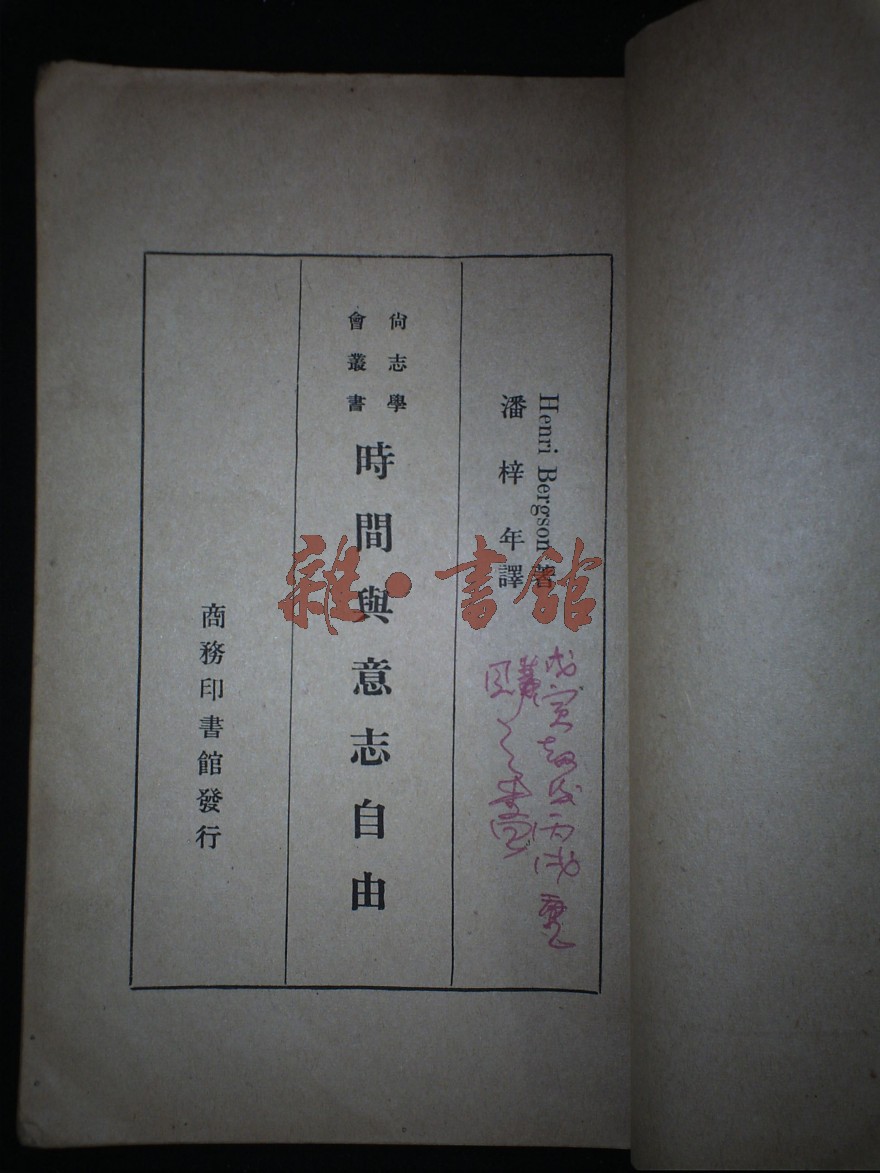 Henri Bergson 著
潘梓年譯
尚志學
會叢書
時間與意志自由
商務印書館發行
雜·書館